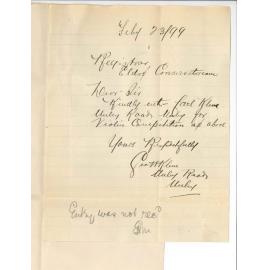 July 23/99
Registrar
Elder Conservatorium
Dear Sir
Kindly enter
Unley Road Unley for
Violin Competition as above
Yours Respectfully
Unley Road
Unley
Entry was not rec'd